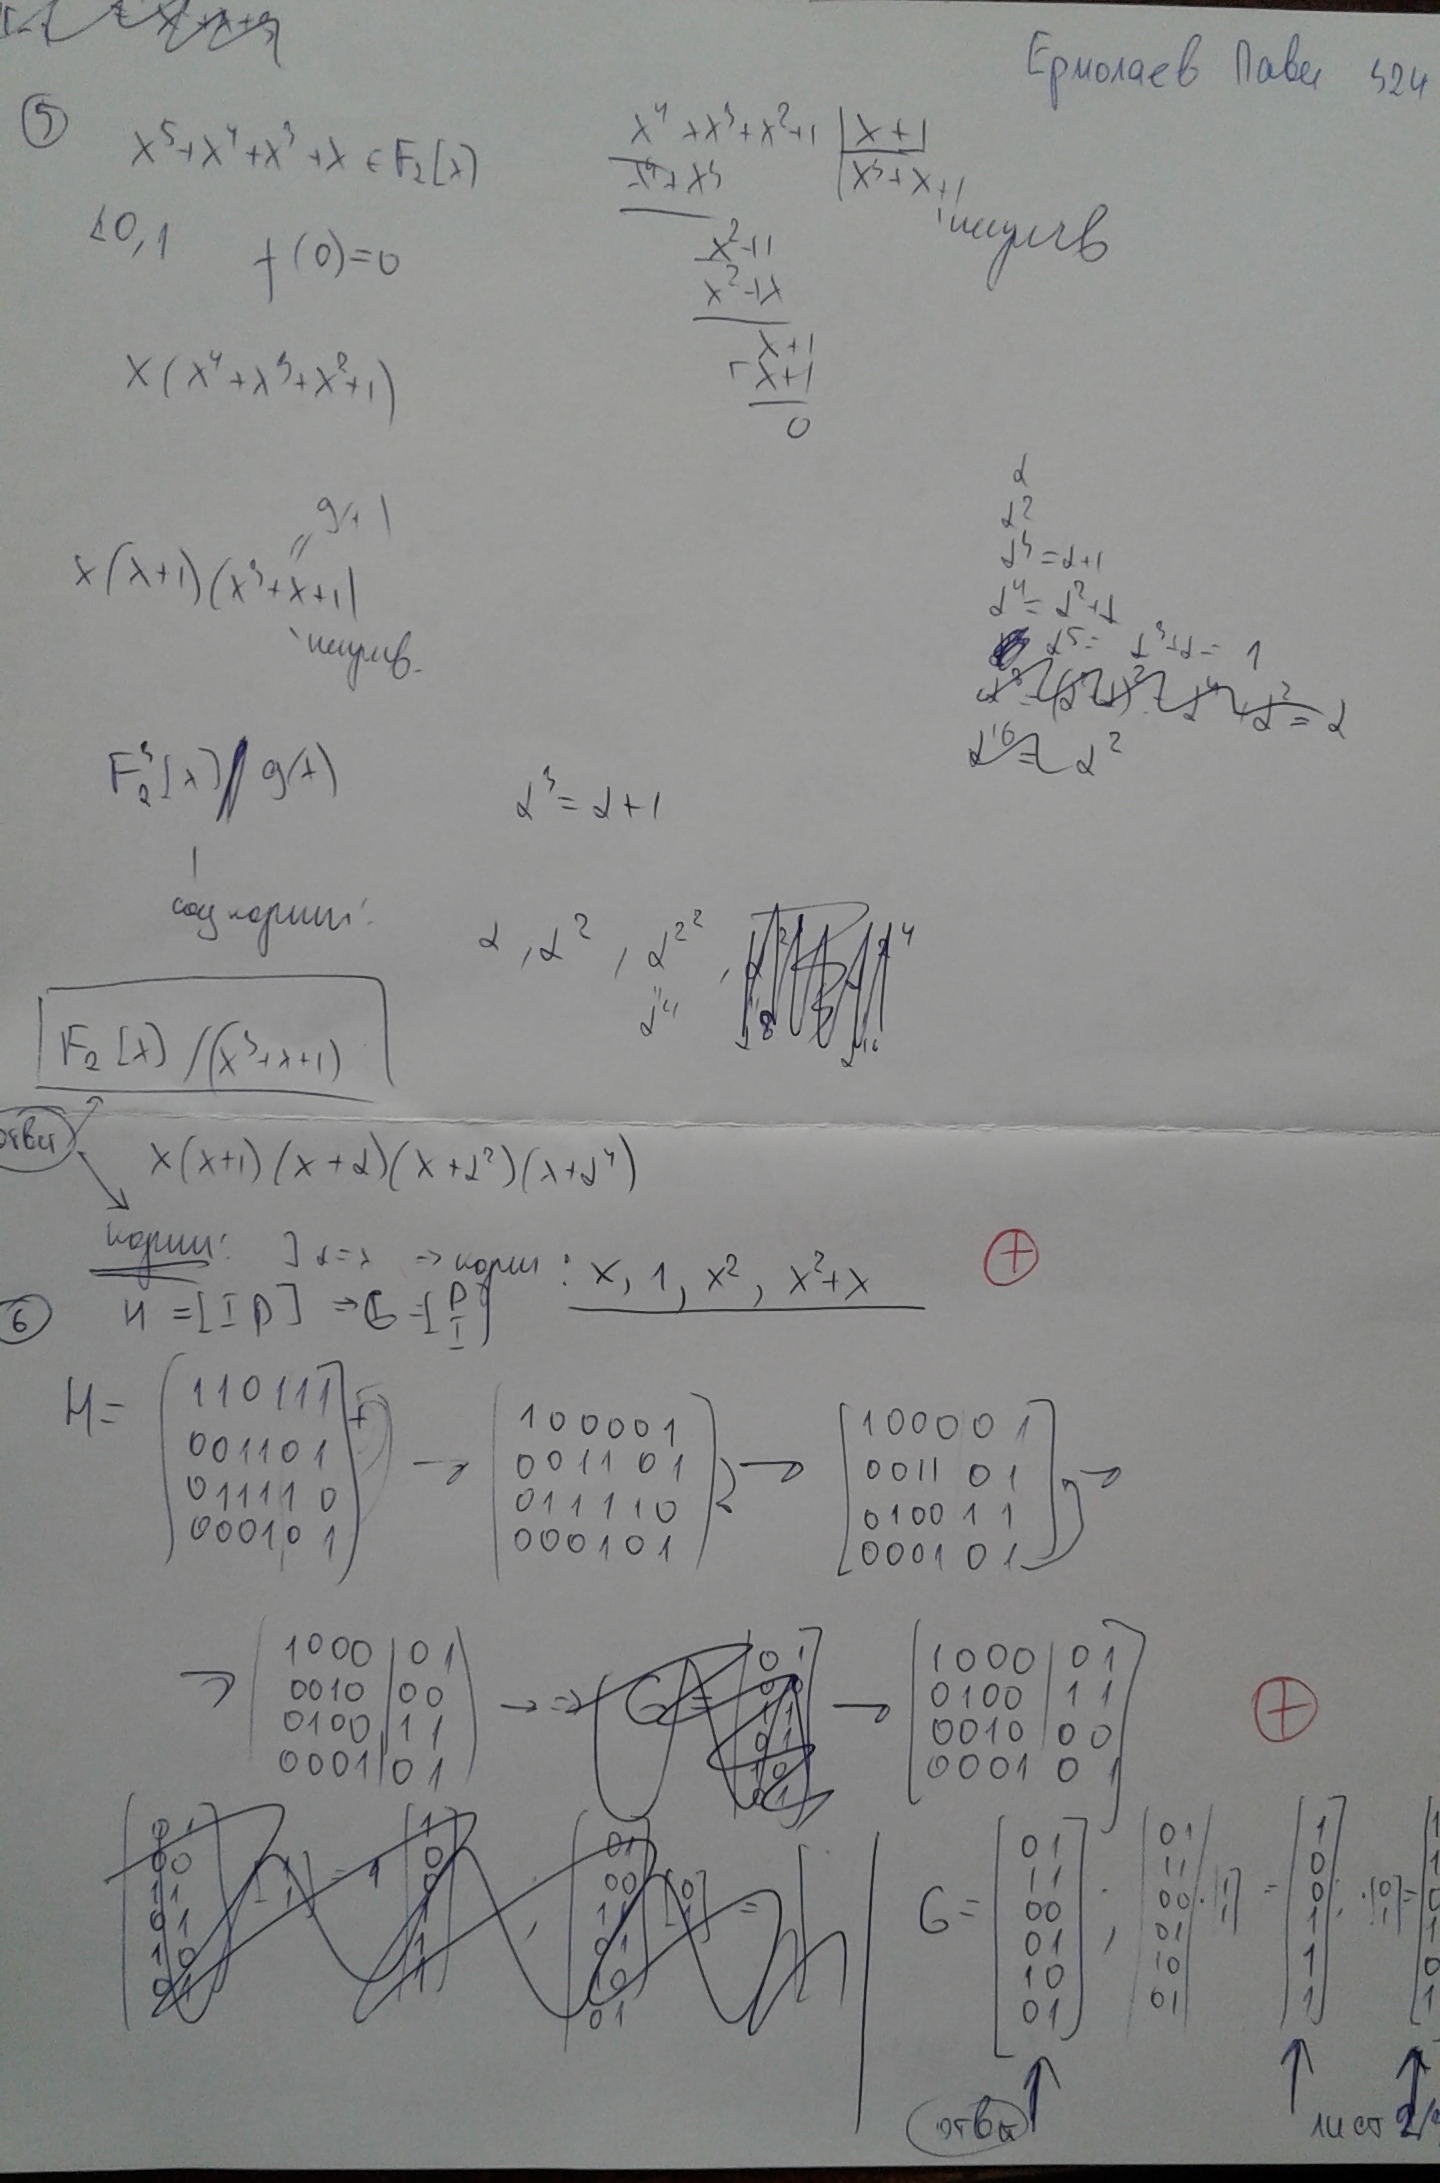 Ермолаев Павел 324
⑤
x⁵+x⁴+x³+x ∈ F₂[x]
x⁴+x³+x²+1 | x+1
x⁴+x³
x³+x+1
неприв
0,1
f(0)=0
x²+1
x²+x
x+1
-x+1
0
x(x⁴+x³+x²+1)
g(x)
x(x+1)(x³+x+1)
неприв.
α
α²
α³=α+1
α⁴=α²+α
α⁵= α³+α= 1
F₂³[x]/g(x)
α³=α+1
корни:
α, α², α²²,
α⁴
F₂[x]/(x³+x+1)
ответ
x(x+1)(x+α)(x+α²)(x+α⁴)
корни: ] α=x → корни: x, 1, x², x²+x
+
⑥ H=[I P] ⇒ G=[P I]
H=
110111
001101
011110
000101
→
100001
001101
011110
000101
→
100001
001101
010011
000101
→
→
1000|01
0010|00
0100|11
0001|01
→ ⇒
→
1000|01
0100|11
0010|00
0001|01
+
G=
01
11
00
01
10
01
;
01
11
00
01
10
01
· [1 1] =
1
0
0
1
1
1
; · [0 1] =
1
1
0
1
0
1
ответ
лист 2/